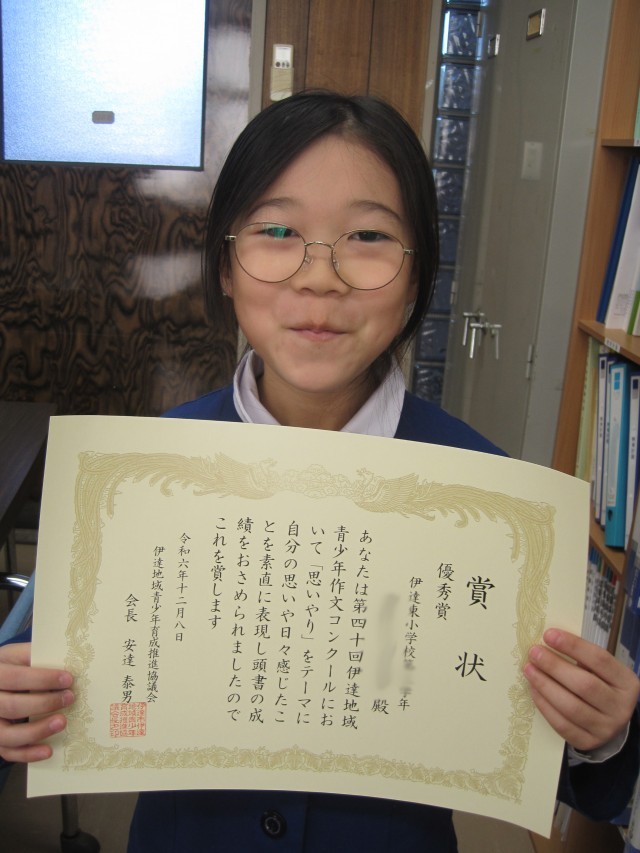 賞状
優秀賞
伊達東小学校第 学年
殿
あなたは第四十回伊達地域
青少年作文コンクールにお
いて「思いやり」をテーマに
自分の思いや日々感じたこ
とを素直に表現し頭書の成
績をおさめられましたので
これを賞します
令和六年十二月八日
伊達地域青少年育成推進協議会
会長 安達 泰男